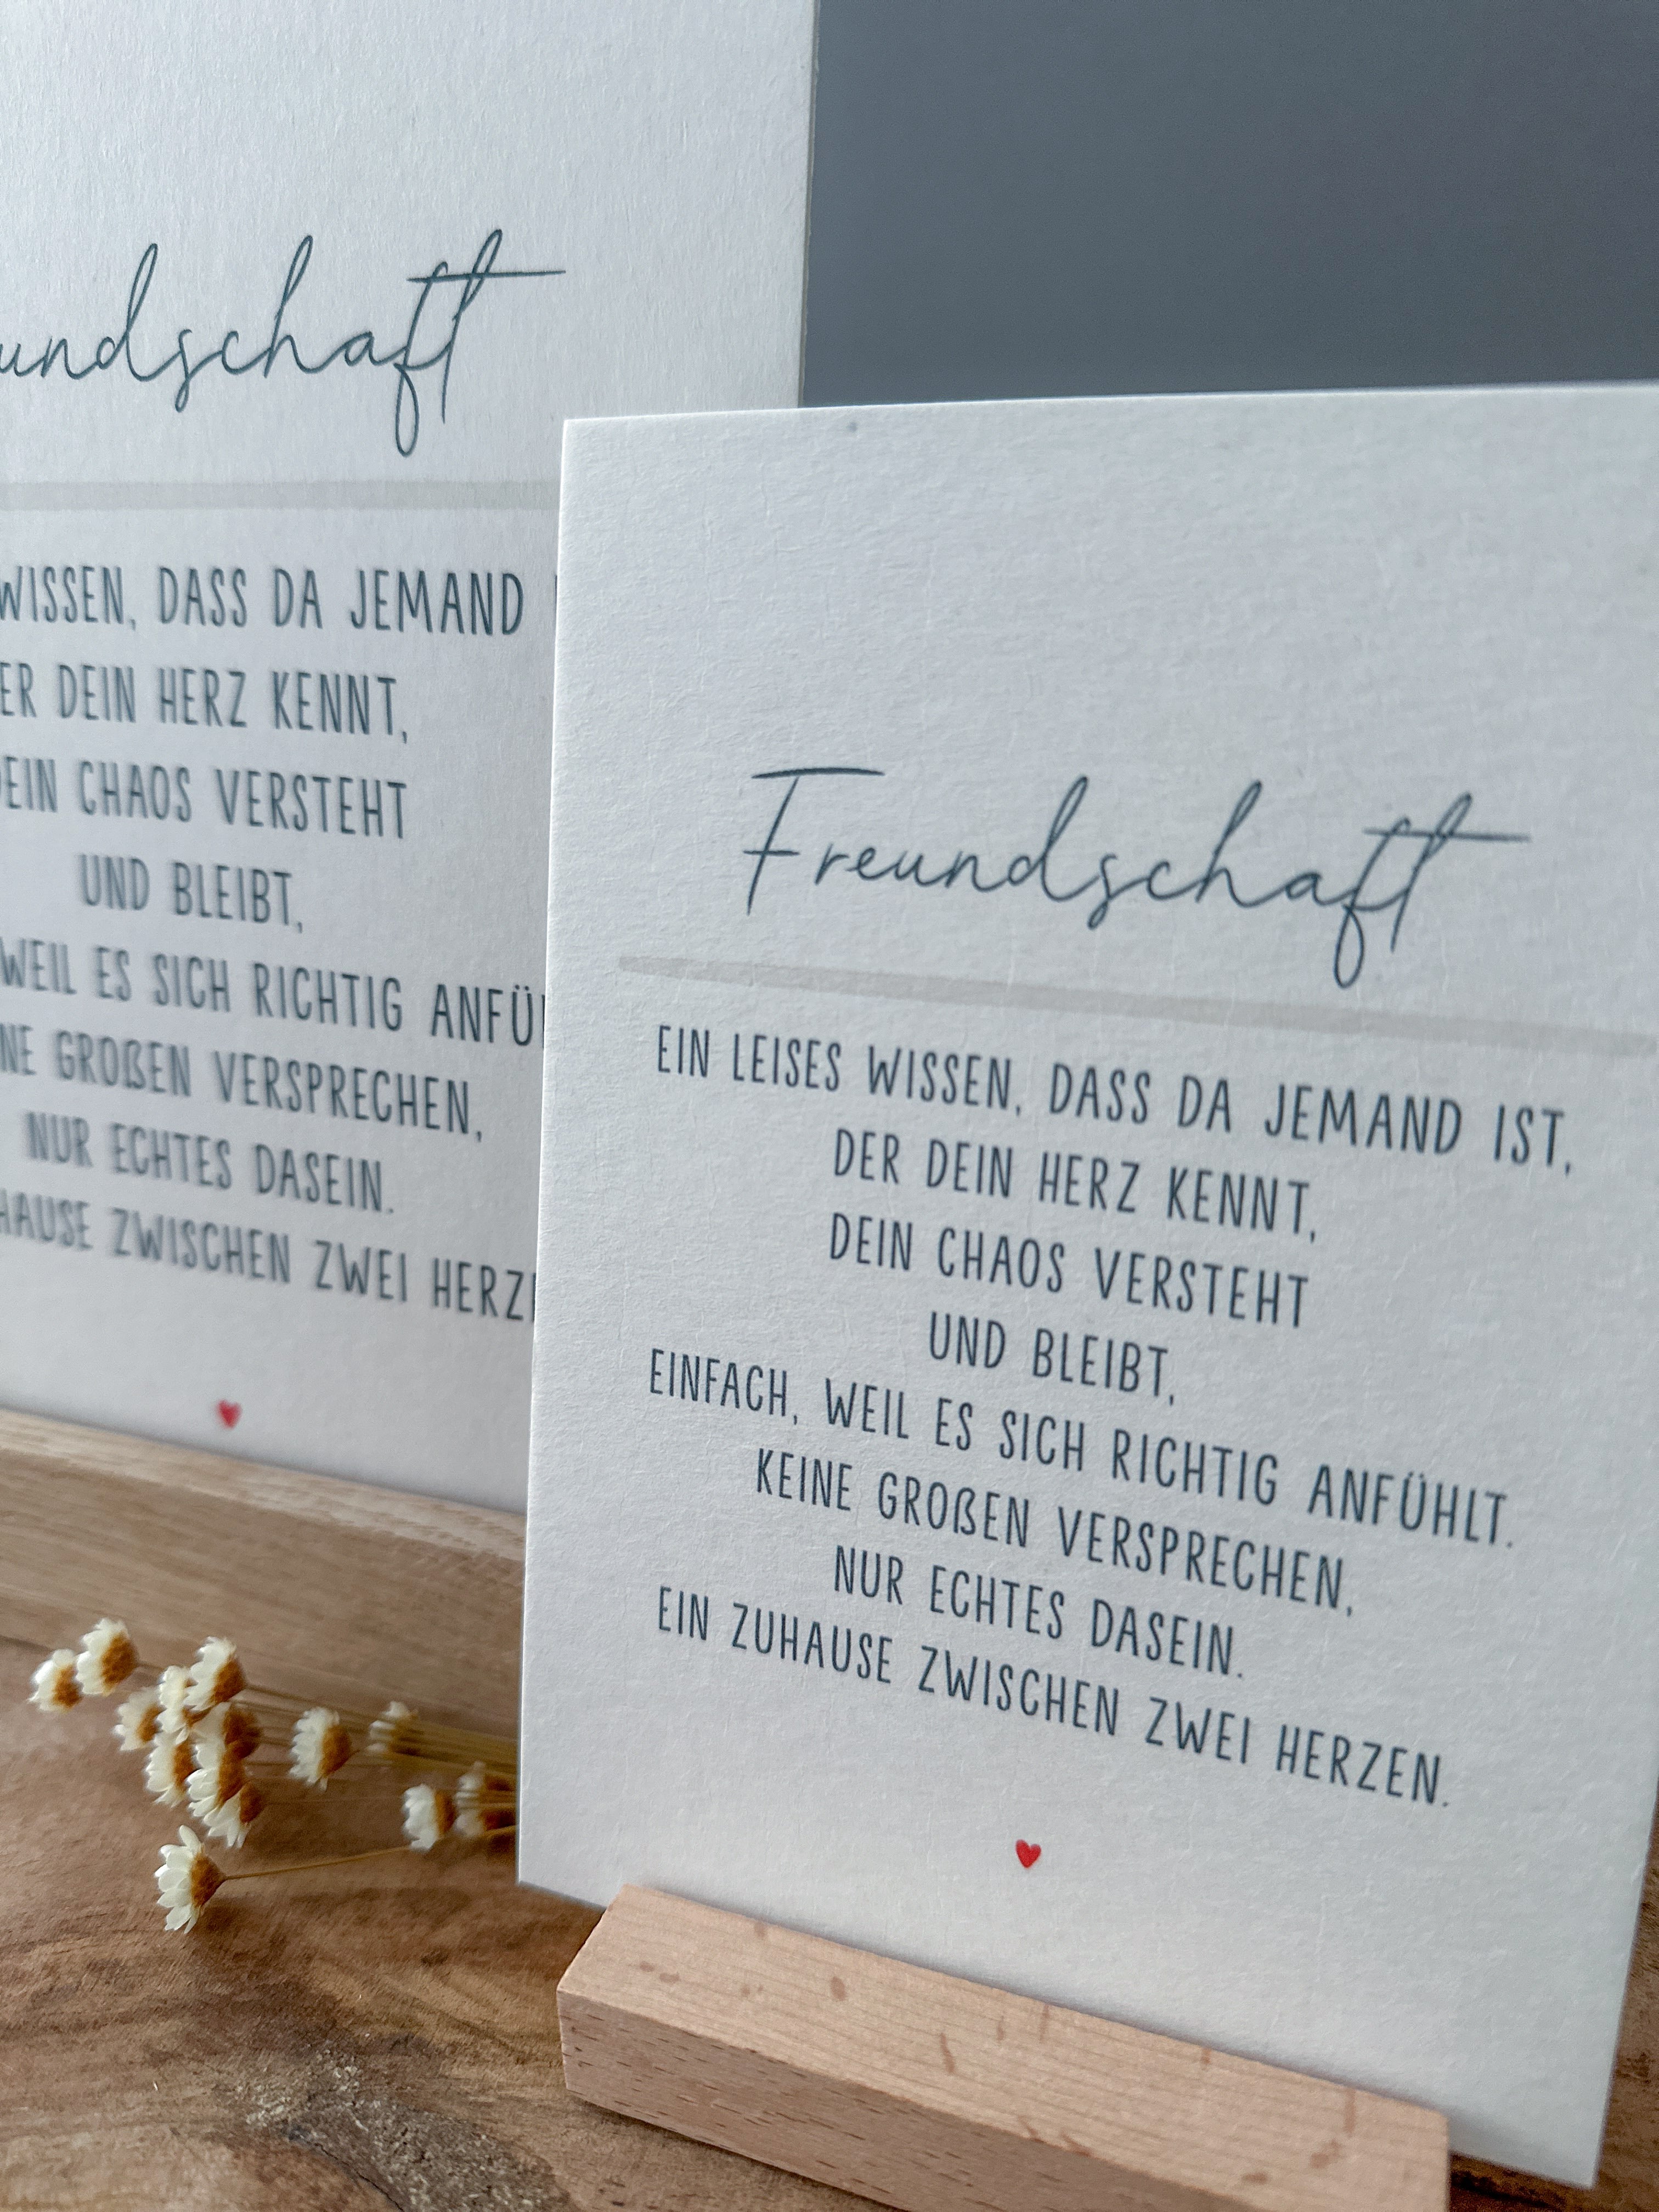 undschaft
WISSEN, DASS DA JEMAND
ER DEIN HERZ KENNT,
DEIN CHAOS VERSTEHT
UND BLEIBT,
WEIL ES SICH RICHTIG ANFÜ
NE GROßEN VERSPRECHEN,
NUR ECHTES DASEIN.
HAUSE ZWISCHEN ZWEI HERZE
Freundschaft
EIN LEISES WISSEN, DASS DA JEMAND IST,
DER DEIN HERZ KENNT,
DEIN CHAOS VERSTEHT
UND BLEIBT,
EINFACH, WEIL ES SICH RICHTIG ANFÜHLT.
KEINE GROßEN VERSPRECHEN,
NUR ECHTES DASEIN.
EIN ZUHAUSE ZWISCHEN ZWEI HERZEN.